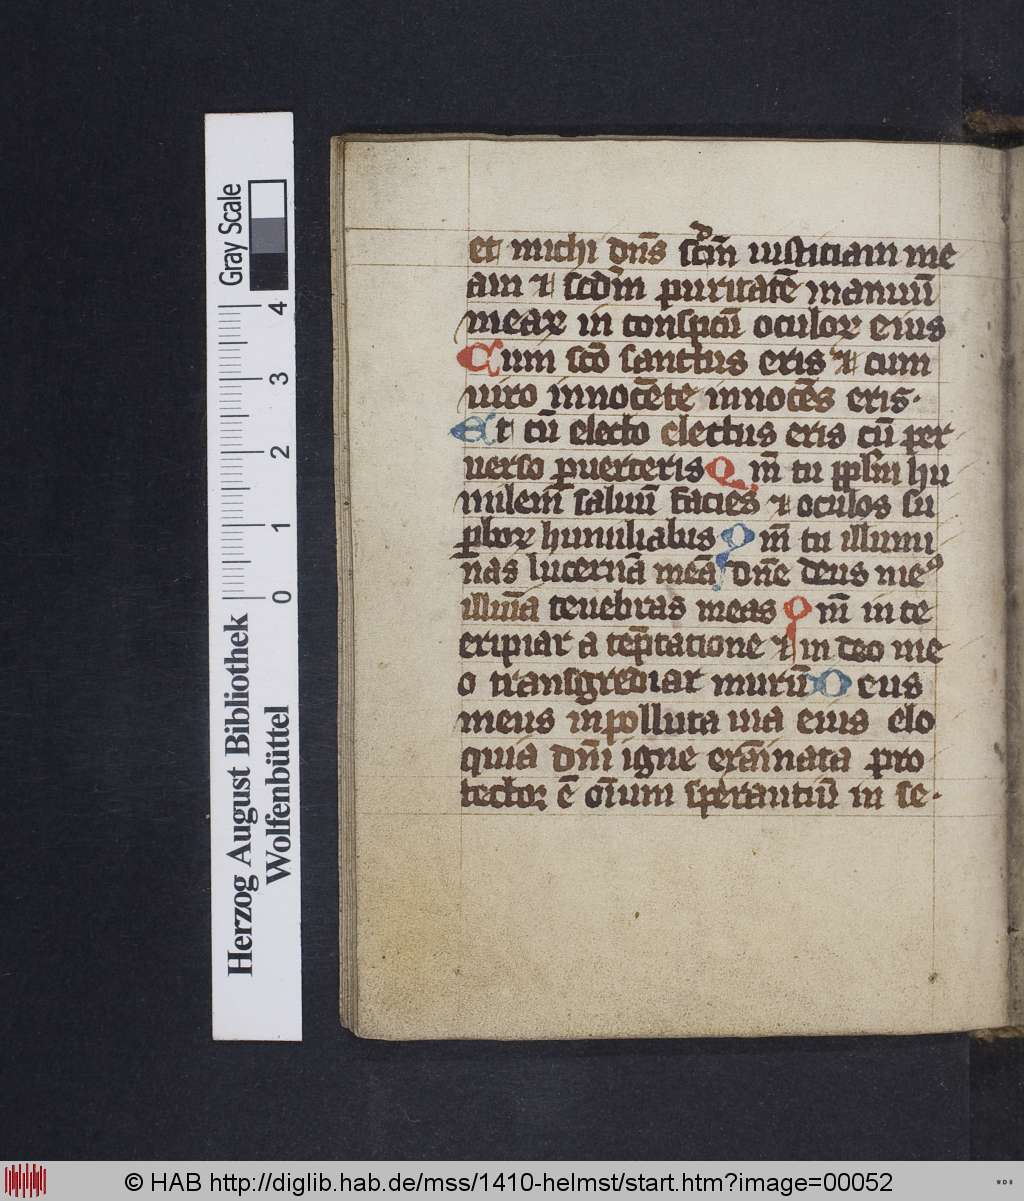 et michi dn̄s scd̄m iusticiam me
am ⁊ scdm̄ puritatē manuū
meaꝝ in conspectū oculoꝝ eius
Cum scō sanctus eris ⁊ cum
uiro innocēte innocēs eris·
Et cū electo electus eris cū per
uerso ꝑuerteris Qm̄ tu pplm̄ hu
milem saluū facies ⁊ oculos su
ꝑboꝝ humiliabis Qm̄ tu illumi
nas lucernā meā dn̄e deus meꝰ
illuīa tenebras meas Qm̄ in te
eripiar a tēptatione ⁊ in deo me
o transgrediar murū Deus
meus inpolluta uia eius elo
quia dn̄i igne exāinata pro
tector ē oīum sperantiū in se·
Herzog August Bibliothek
Wolfenbüttel
0 1 2 3 4
Gray Scale
© HAB http://diglib.hab.de/mss/1410-helmst/start.htm?image=00052